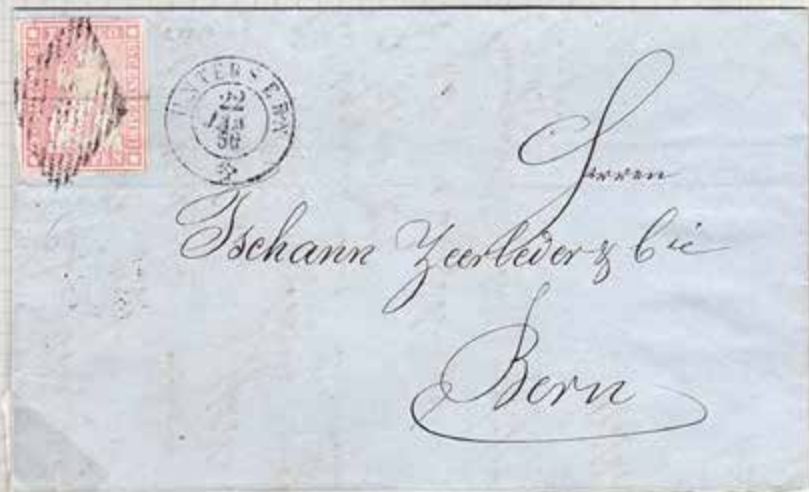 UNTERSEEN
22
JAN
56
Herren
Tschann Zeerleder & Cie
Bern